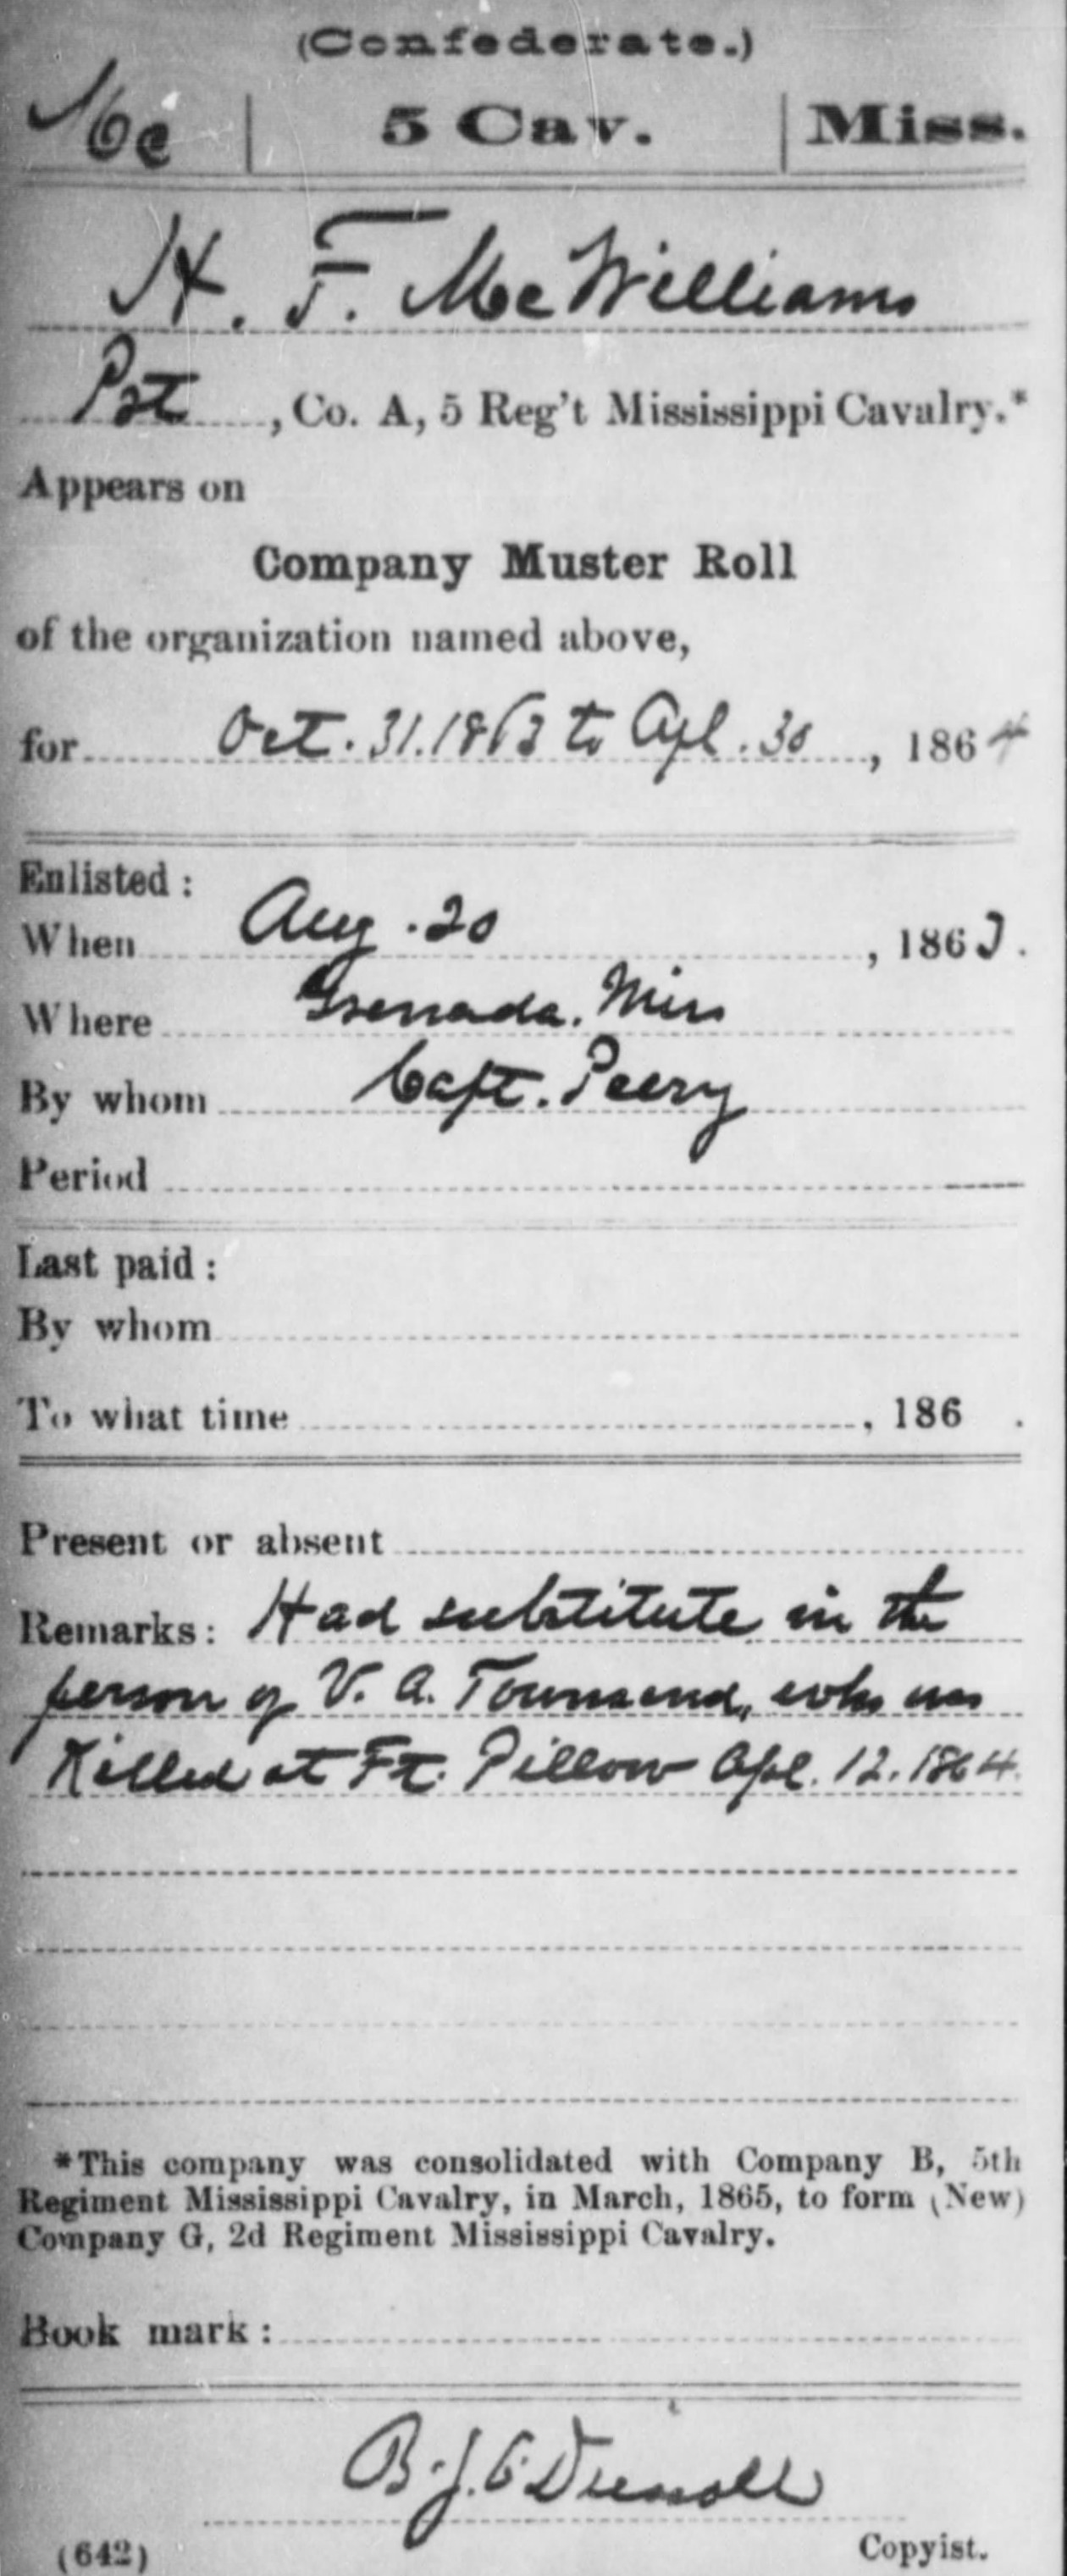 (Confederate.)
Mc | 5 Cav. | Miss.
H. F. McWilliams
Pvt, Co. A, 5 Reg't Mississippi Cavalry.*
Appears on
Company Muster Roll
of the organization named above,
for Oct. 31. 1863 to Apl. 30, 1864
Enlisted:
When Aug. 20, 1863.
Where Grenada, Miss
By whom Capt. Peery
Period
Last paid:
By whom
To what time, 186 .
Present or absent
Remarks: Had substitute in the
person of V. A. Townsend, who was
Killed at Ft. Pillow Apl. 12. 1864.
*This company was consolidated with Company B, 5th
Regiment Mississippi Cavalry, in March, 1865, to form (New)
Company G, 2d Regiment Mississippi Cavalry.
Book mark:
B. J.
(642) Copyist.